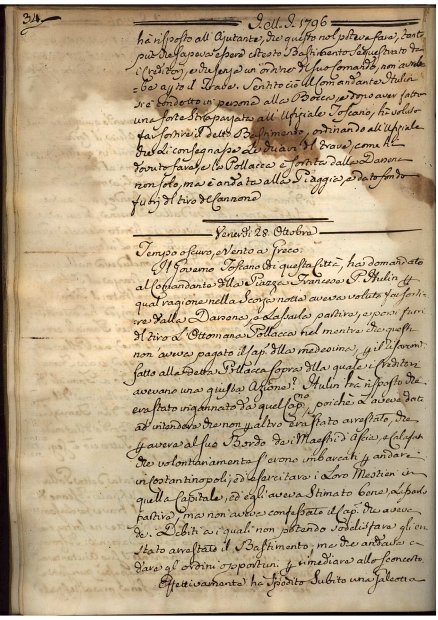 34.
J. M. J. 1796
ha risposto all'Ajutante, che questo nol poteva fare, tanto
più che sapeva essere cotesto Bastimento Sequestrato da
i Creditori, e che senza un ordine di suo Comando, non avreb-
be apto il Trave. Sentito ciò il Comandante Hulin
si è condotto in persona alla Bocca, e dopo aver fatto
una forte Strapazzata all'Ufiziale Toscano, ha voluto
far sortire il detto Bastimento, ordinando all'Ufiziale
che li consegnasse le chiavi del trave, come ha
dovuto fare, e la Pollacca è sortita dalla Darsena
non solo, ma è andata alla Piaggia, e dato fondo
fuori del tiro del Cannone
Venerdì 28. Ottobre
Tempo oscuro, e Vento a Greco
Il Governo Toscano di questa Città, ha domandato
al Comandante della Piazza Francese P. Hulin p
qual ragione nella Scorsa notte aveva voluto far sorti-
re dalla Darsena, e lasciarla partire, e porsi fuori
del tiro L'Ottomana Pollacca nel mentre che questa
non aveva pagato il Cap. della medesima, p il
fatto alla detta Pollacca sopra della quale i Creditori
avevano una giusta Azione? Hulin ha risposto che
era stato ingannato da quel Capno, poichè Le aveva dato
ad intendere che non p altro era stato arrestato, che
p avere al suo Bordo dei Maestri d'Ascia, e Calafati
che volontariamente s'erono imbarcati p andare
in Costantinopoli, ed esercitare i Loro Mestieri in
quella Capitale, ed egli aveva Stimato bene Lasciarla
partire, ma non aveva confessato il Cap. che aveva
de' Debiti a i quali non potendo sodelisfare gli era
stato arrestato il Bastimento, ma che andava a
dare gli ordini opportuni, p rimediare allo sconcerto.
Effettivamente ha Spedito Subito una Galeotta